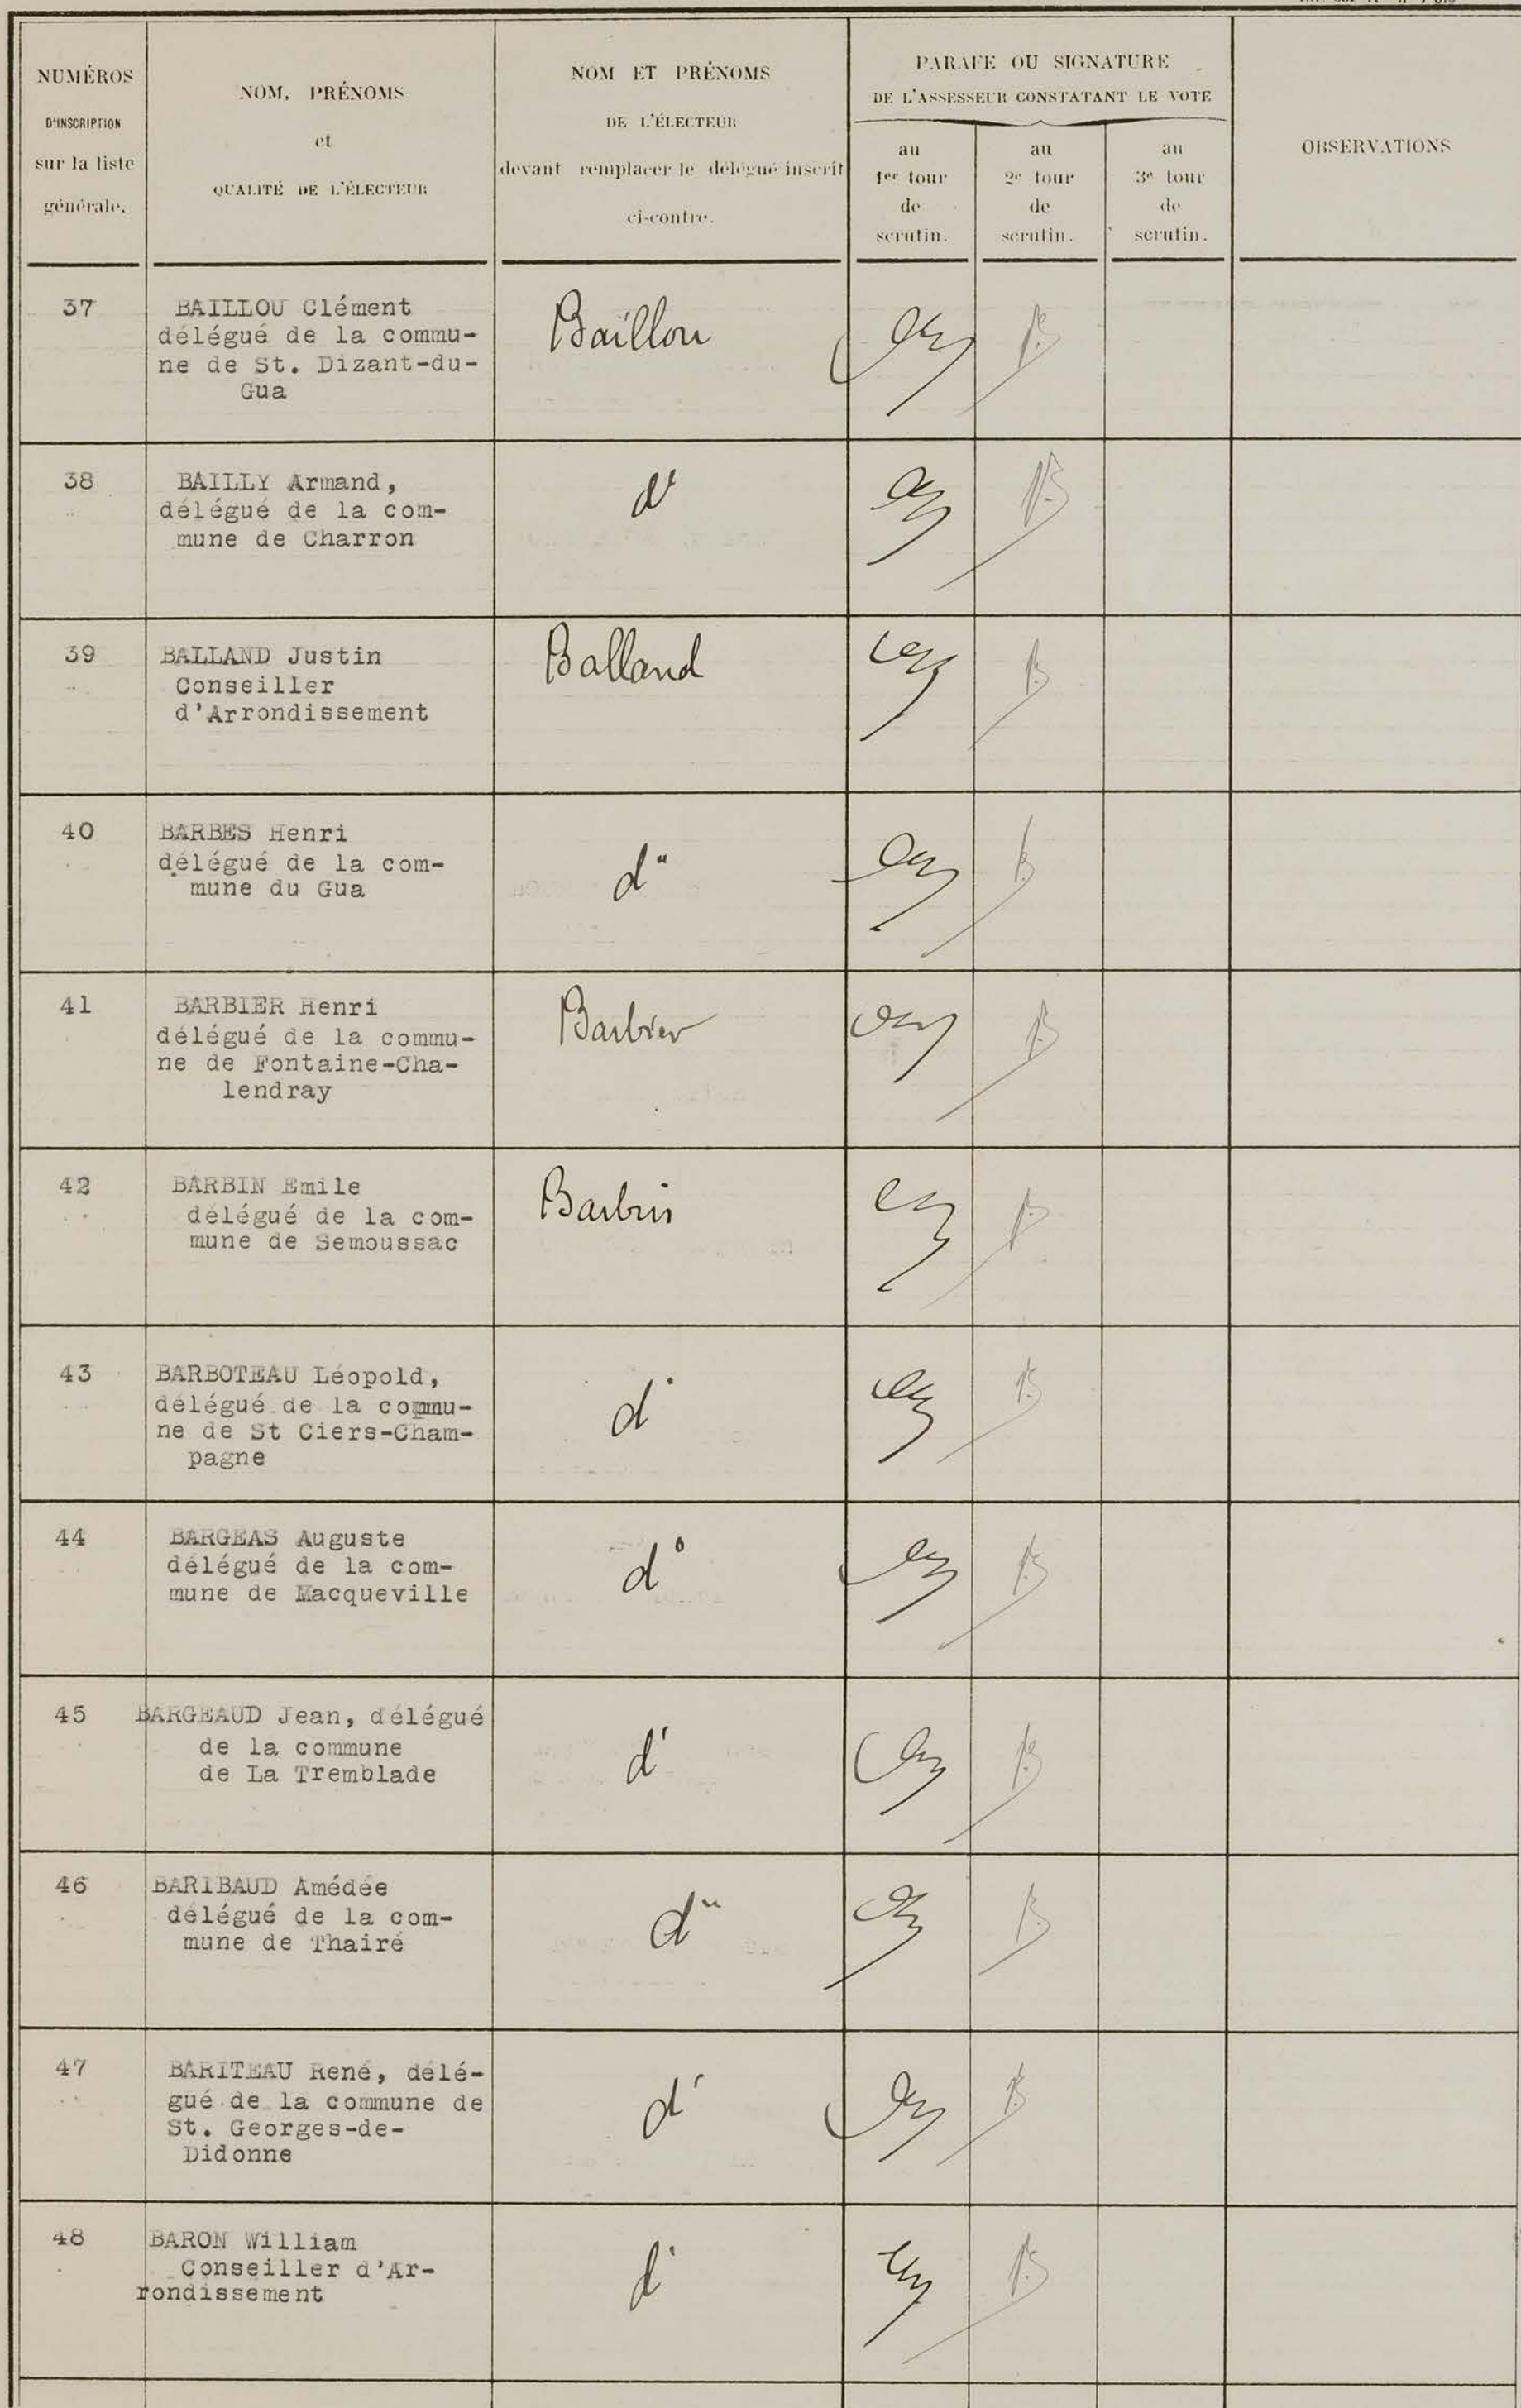 NUMÉROS
D'INSCRIPTION
sur la liste
générale.
NOM, PRÉNOMS
et
QUALITÉ DE L'ÉLECTEUR
NOM ET PRÉNOMS
DE L'ÉLECTEUR
devant remplacer le délégué inscrit
ci-contre.
PARAFE OU SIGNATURE
DE L'ASSESSEUR CONSTATANT LE VOTE
au
1er tour
de
scrutin.
au
2e tour
de
scrutin.
au
3e tour
de
scrutin.
OBSERVATIONS
37
BAILLOU Clément
délégué de la commu-
ne de St. Dizant-du-
Gua
Baillou
38
BAILLY Armand,
délégué de la com-
mune de Charron
d°
39
BALLAND Justin
Conseiller
d'Arrondissement
Balland
40
BARBES Henri
délégué de la com-
mune du Gua
d°
41
BARBIER Henri
délégué de la commu-
ne de Fontaine-Cha-
lendray
Barbier
42
BARBIN Emile
délégué de la com-
mune de Semoussac
Barbin
43
BARBOTEAU Léopold,
délégué de la commu-
ne de St Ciers-Cham-
pagne
d°
44
BARGEAS Auguste
délégué de la com-
mune de Macqueville
d°
45
BARGEAUD Jean, délégué
de la commune
de La Tremblade
d°
46
BARIBAUD Amédée
délégué de la com-
mune de Thairé
d°
47
BARITEAU René, délé-
gué de la commune de
St. Georges-de-
Didonne
d°
48
BARON William
Conseiller d'Ar-
rondissement
d°